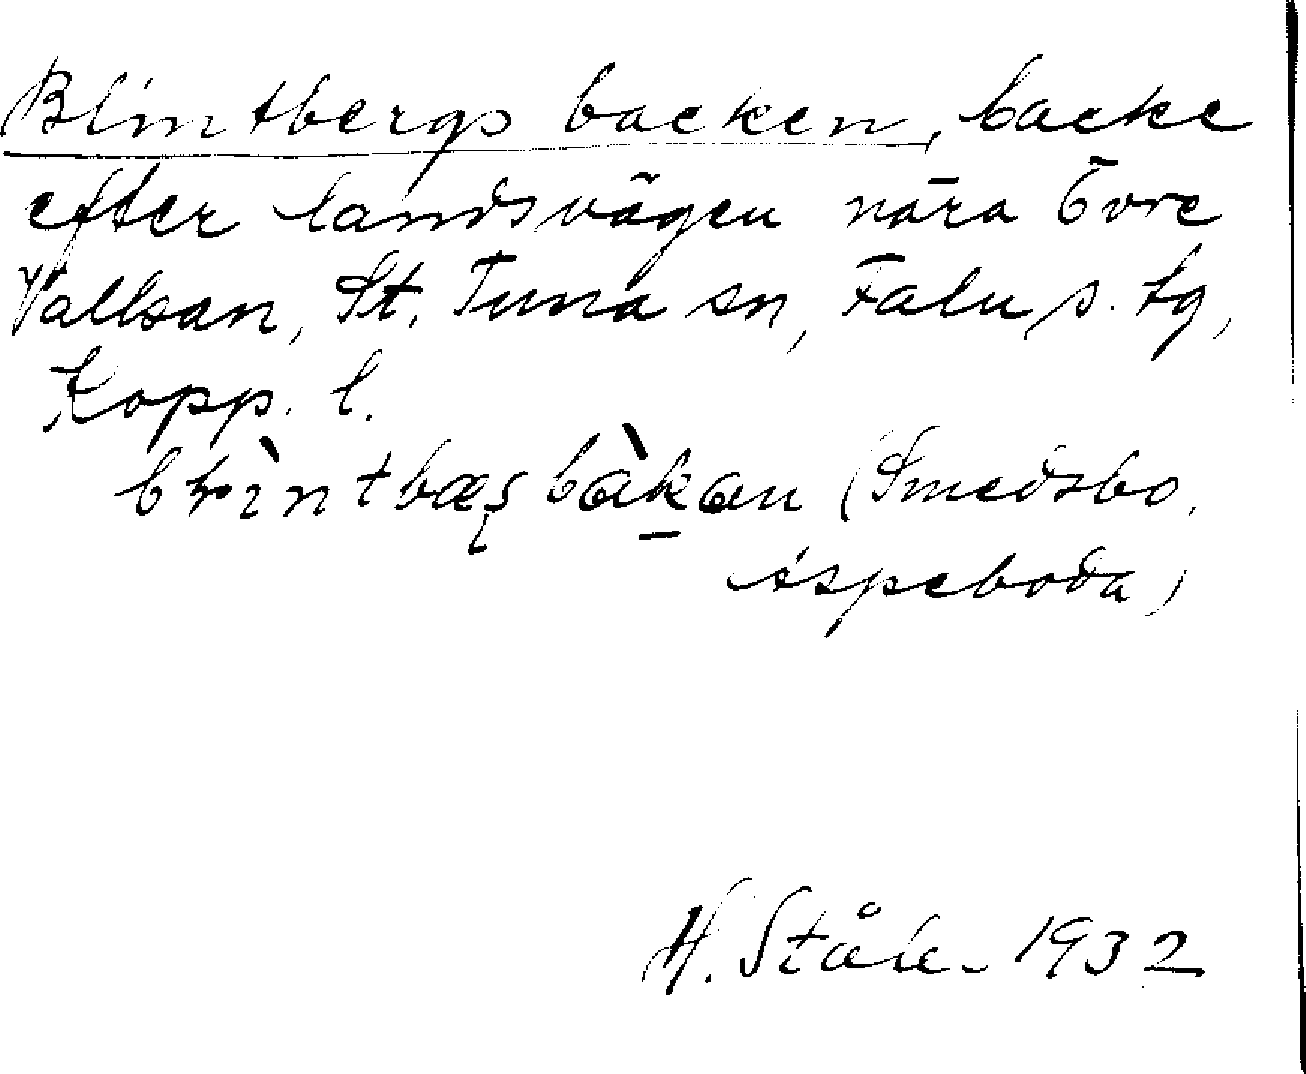 Blintbergsbacken, backe
efter landsvägen nära Övre
Vallsan, St. Tuna sn, Falu s. tg,
Kopp. l.
(Smedsbo,
Aspeboda)
H. Ståhl 1932